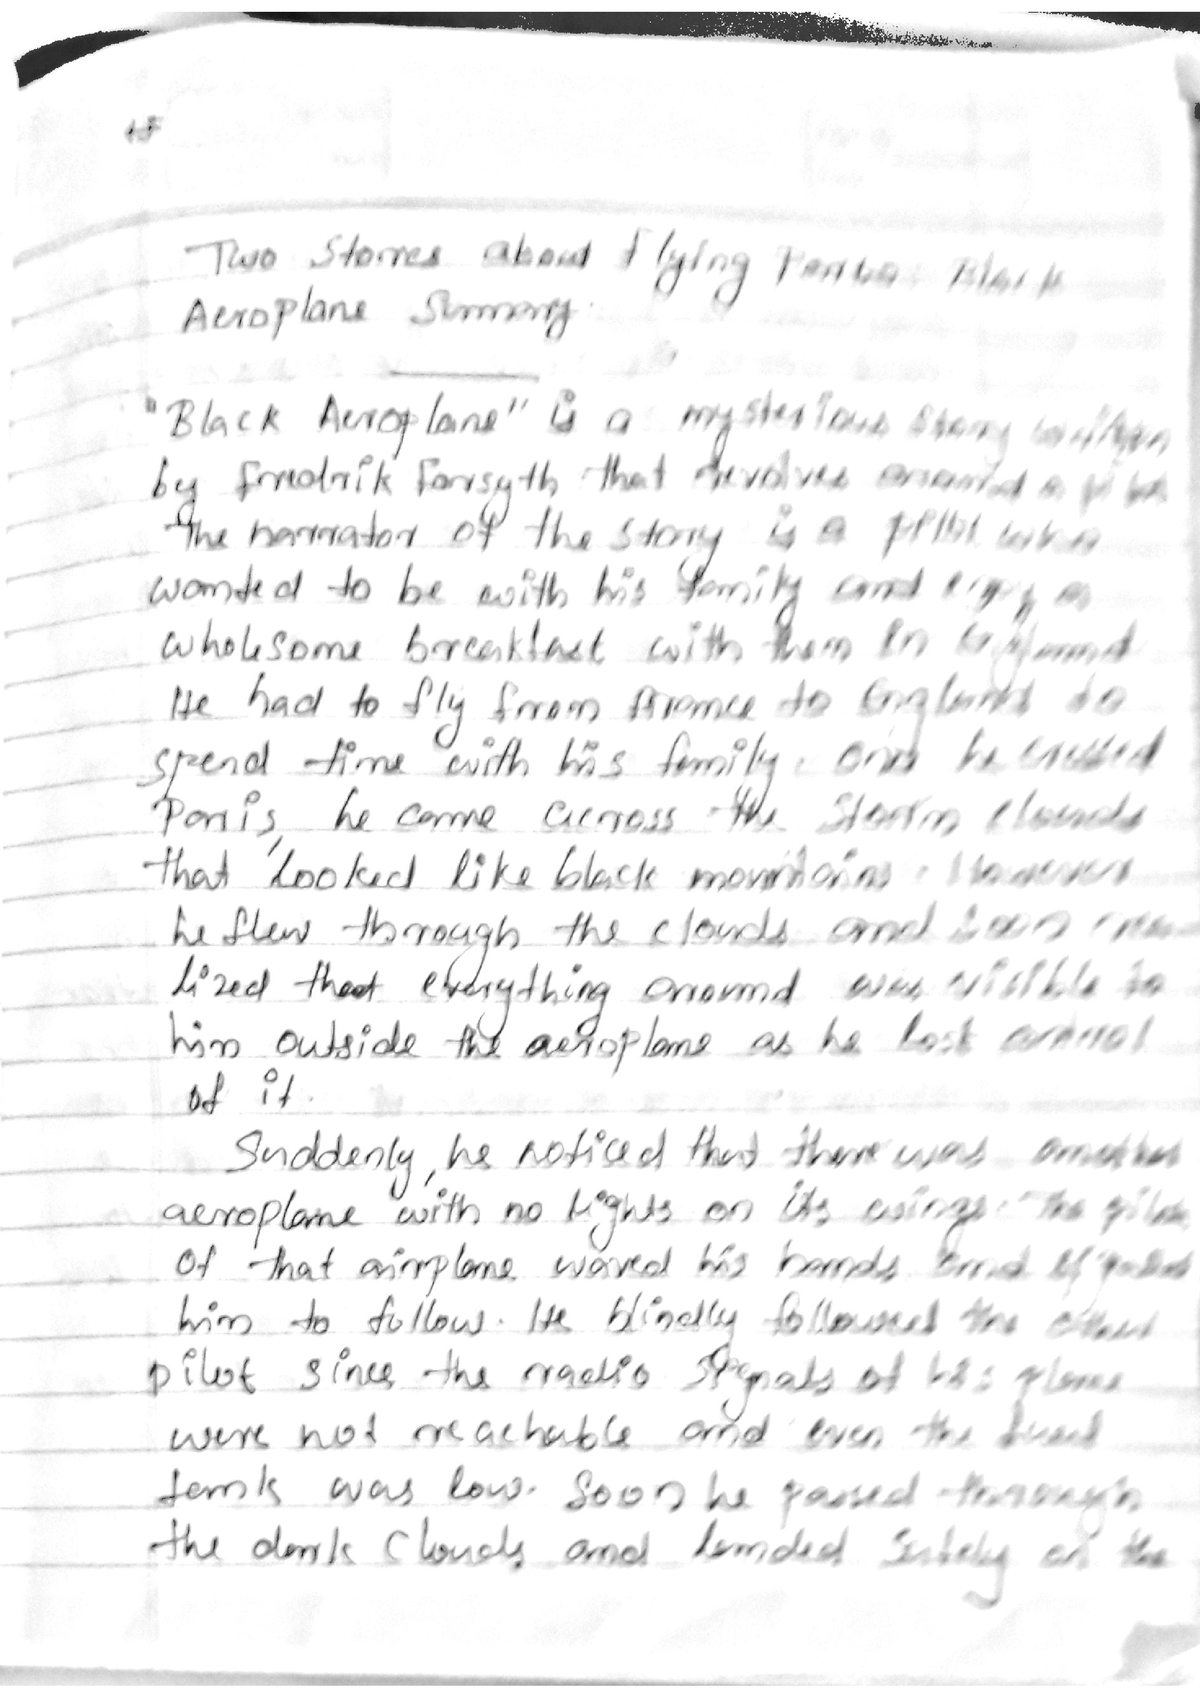 Two Stories about Flying Part 2: Black
Aeroplane Summary
"Black Aeroplane" is a mysterious story written
by fredrik Forsyth that revolves around a pilot
The narrator of the story is a pilot who
wanted to be with his family and enjoy a
wholesome breakfast with them in England
He had to fly from France to England to
spend time with his family. Once he crossed
Paris, he came across the Storm clouds
that looked like black mountains. However
he flew through the clouds and soon rea
lized that everything around was visible to
him outside the aeroplane as he lost control
of it.
Suddenly, he noticed that there was another
aeroplane with no lights on its wings. The pilot
of that airplane waved his hands and signalled
him to follow. He blindly followed the other
pilot since the radio signals of his plane
were not reachable and even the fuel
tank was low. Soon he passed through
the dark clouds and landed safely on the